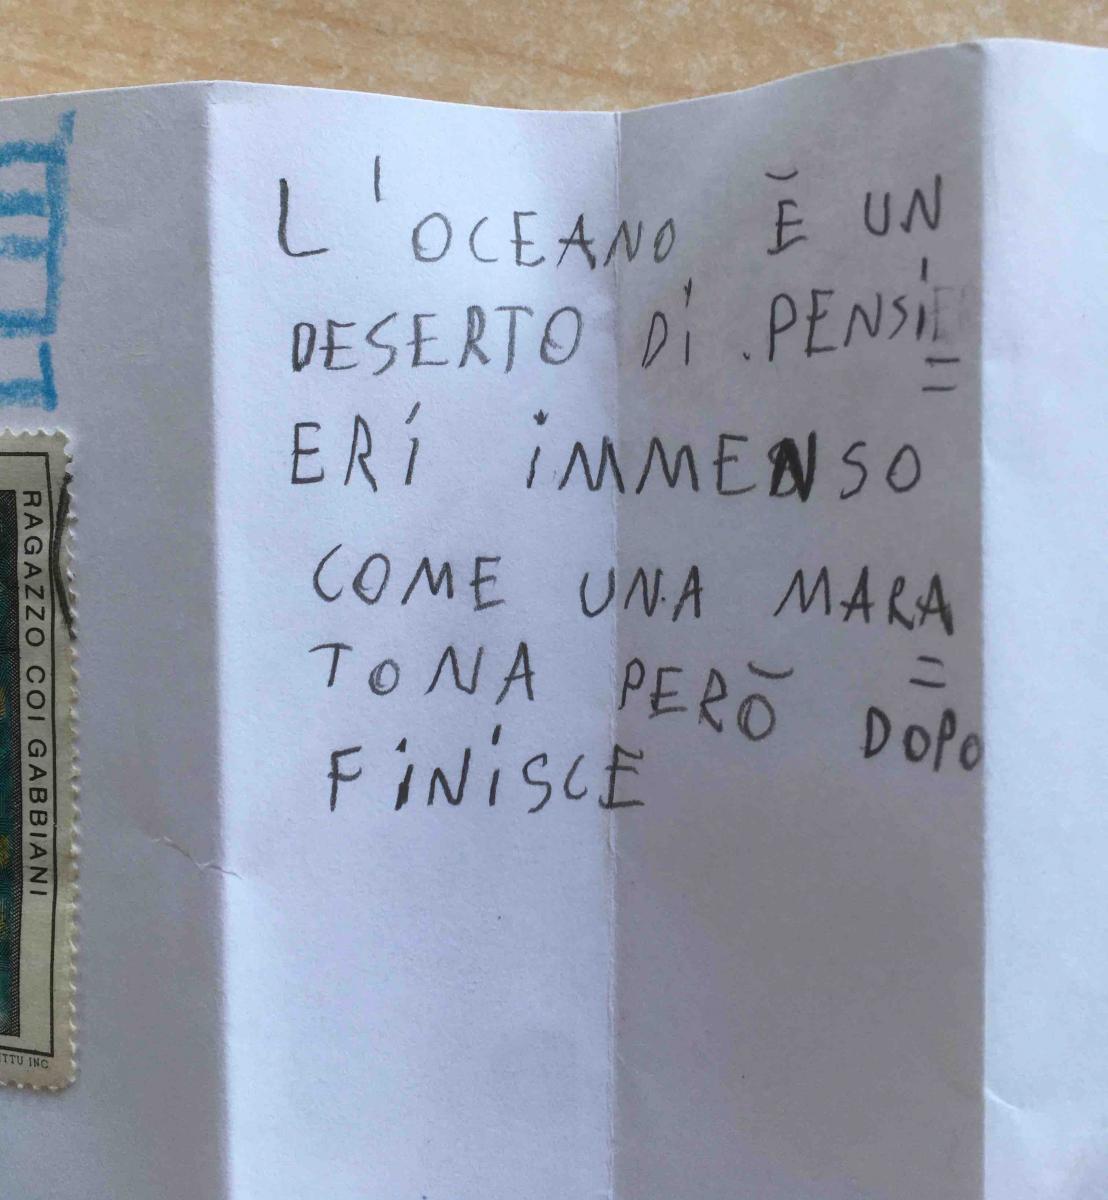 L'OCEANO È UN
DESERTO Di . PENSi=
ERi iMMENSO
COME UNA MARA=
TONA PERÒ DOPO
FiNiSCE
RAGAZZO COI GABBIANI
INC